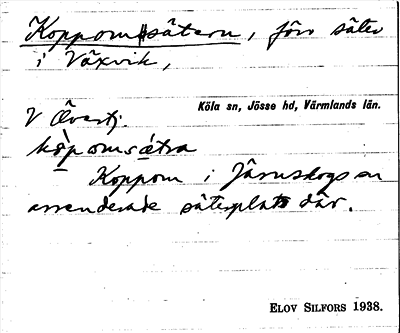 Koppomsätern, förr säter
i Växvik,
Köla sn, Jösse hd, Värmlands län.
V Överby.
kòpomsǽtra
Koppom i Järnskogs sn
arrenderade säterplats där.
ELOV SILFORS 1938.